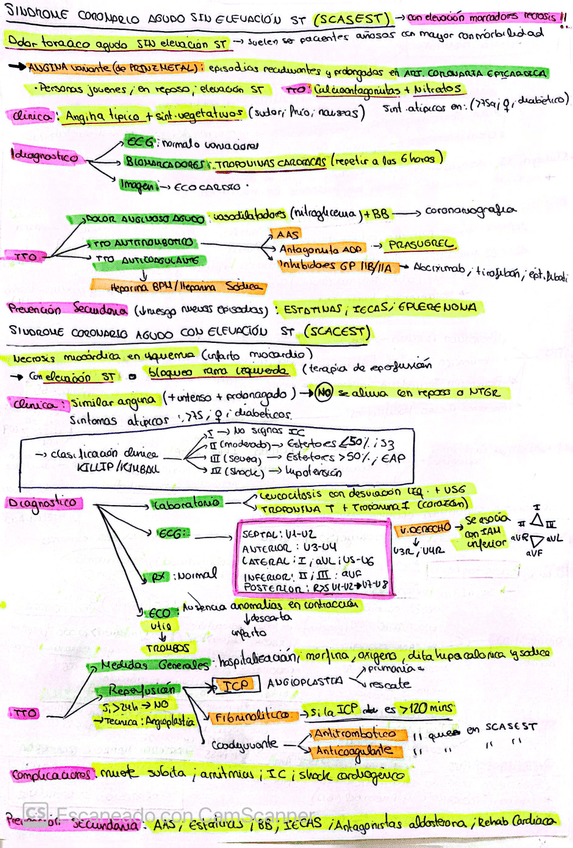 SINDROME CORONARIO AGUDO SIN ELEVACIÓN ST (SCASEST) → con elevación marcadores necrosis!!
Dolor toracico agudo SIN elevación ST → suelen ser pacientes añosos con mayor comorbilidad
→ ANGINA variante (de PRINZMETAL): episodios recidivantes y prolongados en ART. CORONARIA EPICARDICA
· Personas jovenes, en reposo, elevación ST TTO: Calcioantagonistas + Nitratos
Clinica: Angina tipica + sint. vegetativos (sudor, frio, nauseas) Sint. atipicos en: (>75a, ♀, diabetico)
Diagnostico
→ ECG: normal o variaciones
→ BIOMARCADORES: TROPONINAS CARDIACAS (repetir a las 6 horas)
→ Imagen: → ECOCARDIO.
TTO
DOLOR ANGINOSO AGUDO: vasodilatadores (nitroglicerina) + BB → coronariografia
TTO ANTITROMBOTICO
→ AAS
→ Antagonista ADP → PRASUGREL
→ Inhibidores GP IIB/IIA → Abciximab, tirofiban,
TTO ANTICOAGULANTE
Heparina BPM/Heparina Sódica
Prevención Secundaria (↓riesgo nuevos episodios): ESTATINAS, IECAS, EPLERENONA
SINDROME CORONARIO AGUDO CON ELEVACIÓN ST (SCACEST)
Necrosis miocárdica en isquemia (infarto miocardio)
→ Con elevación ST o bloqueo rama izquierda (terapia de reperfusión
Clinica: Similar angina (+ intenso + prolongado) → NO se alivia con reposo o NTGR
Sintomas atipicos: >75, ♀, diabeticos.
→ clasificación clinica KILLIP/KIMBALL
I → No signos IC
II (moderado) → Estertores ≤50%, S3
III (severa) → Estertores >50%, EAP
IV (Shock) → hipotensión
Diagnostico
Laboratorio
→ Leucocitosis con desviación izq. + VSG
→ TROPONINA T + Troponina I (corazón)
ECG:
SEPTAL: V1-V2
ANTERIOR: V3-V4
LATERAL: I, aVL, V5-V6
INFERIOR: II, III, aVF
POSTERIOR: RXS V1-V2 → V7-V8
V. DERECHO → Se asocia con IAM inferior
V3R, V4R
I
II III
aVR aVL
aVF
RX: Normal
ECO: Ausencia anomalias en contracción
↓ descarta
infarto
util
↓
TROMBOS
TTO
Medidas Generales: hospitalización, morfina, oxigeno, dita hipocalorica y sodica
Reperfusión
Si >24h → NO
→ Tecnica: Angioplastia
→ ICP ANGIOPLASTIA
→ primaria
→ rescate
→ Fibrinolitico → Si la ICP de es >120 mins
Coadyuvante
→ Antitrombotico
→ Anticoagulante
" que en SCASEST
" " " "
Complicaciones: muerte subita, arritmias, IC, shock cardiogénico
CS Escaneado con CamScanner
Secundaria: AAS, Estatinas, BB, IECAS, Antagonistas aldosterona, Rehab Cardiaca